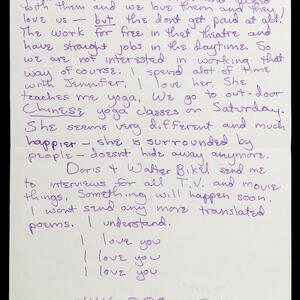 with them and we love them and they
love us — but the dont get paid at all!
The work for free in that theatre and
have straight jobs in the daytime. So
we are not interested in working that
way of course. I spend alot of time
with Jennifer, I love her. She
teaches me yoga. We go to out-door
Chinese yoga classes on Saturday.
She seems very different and much
happier — she is surrounded by
people — doesnt hide away anymore.
Doris & Walter Bikel send me
to interviews for all T.V. and movie
things, Something will happen soon.
I wont send any more translated
poems. I understand.
I love you
I love you
I love you